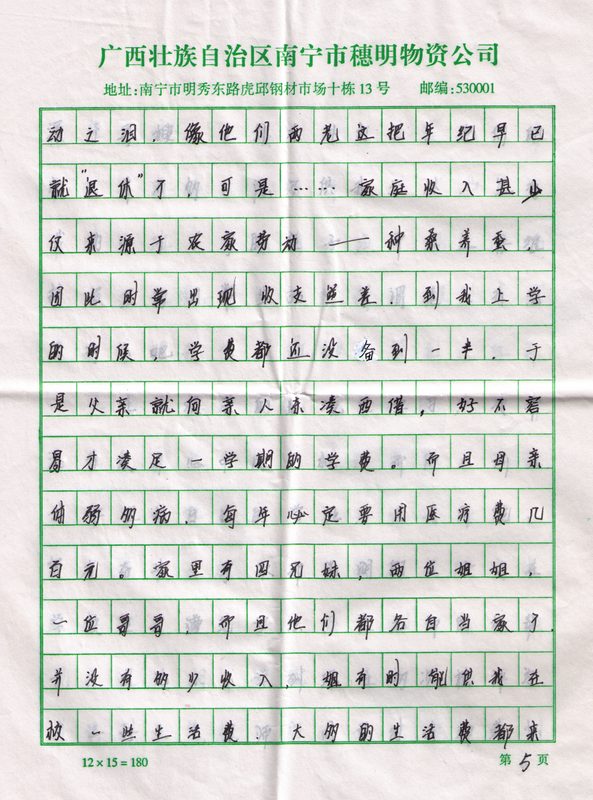 广西壮族自治区南宁市穗明物资公司
地址:南宁市明秀东路虎邱钢材市场十栋13号 邮编:530001
动之泪，像他们两老这把年纪早已
就“退休”了，可是……家庭收入甚少
仅来源于农家劳动——种桑养蚕，
因此时常出现收支逆差，到我上学
的时候，学费都还没备到一半，于
是父亲就向亲人东凑西借，好不容
易才凑足一学期的学费。而且母亲
体弱多病，每年必定要用医疗费几
百元。家里有四兄妹，两位姐姐，
一位哥哥，而且他们都各自当家了，
并没有多少收入，姐有时能供我在
校一些生活费，大多的生活费都来
12×15=180 第5页